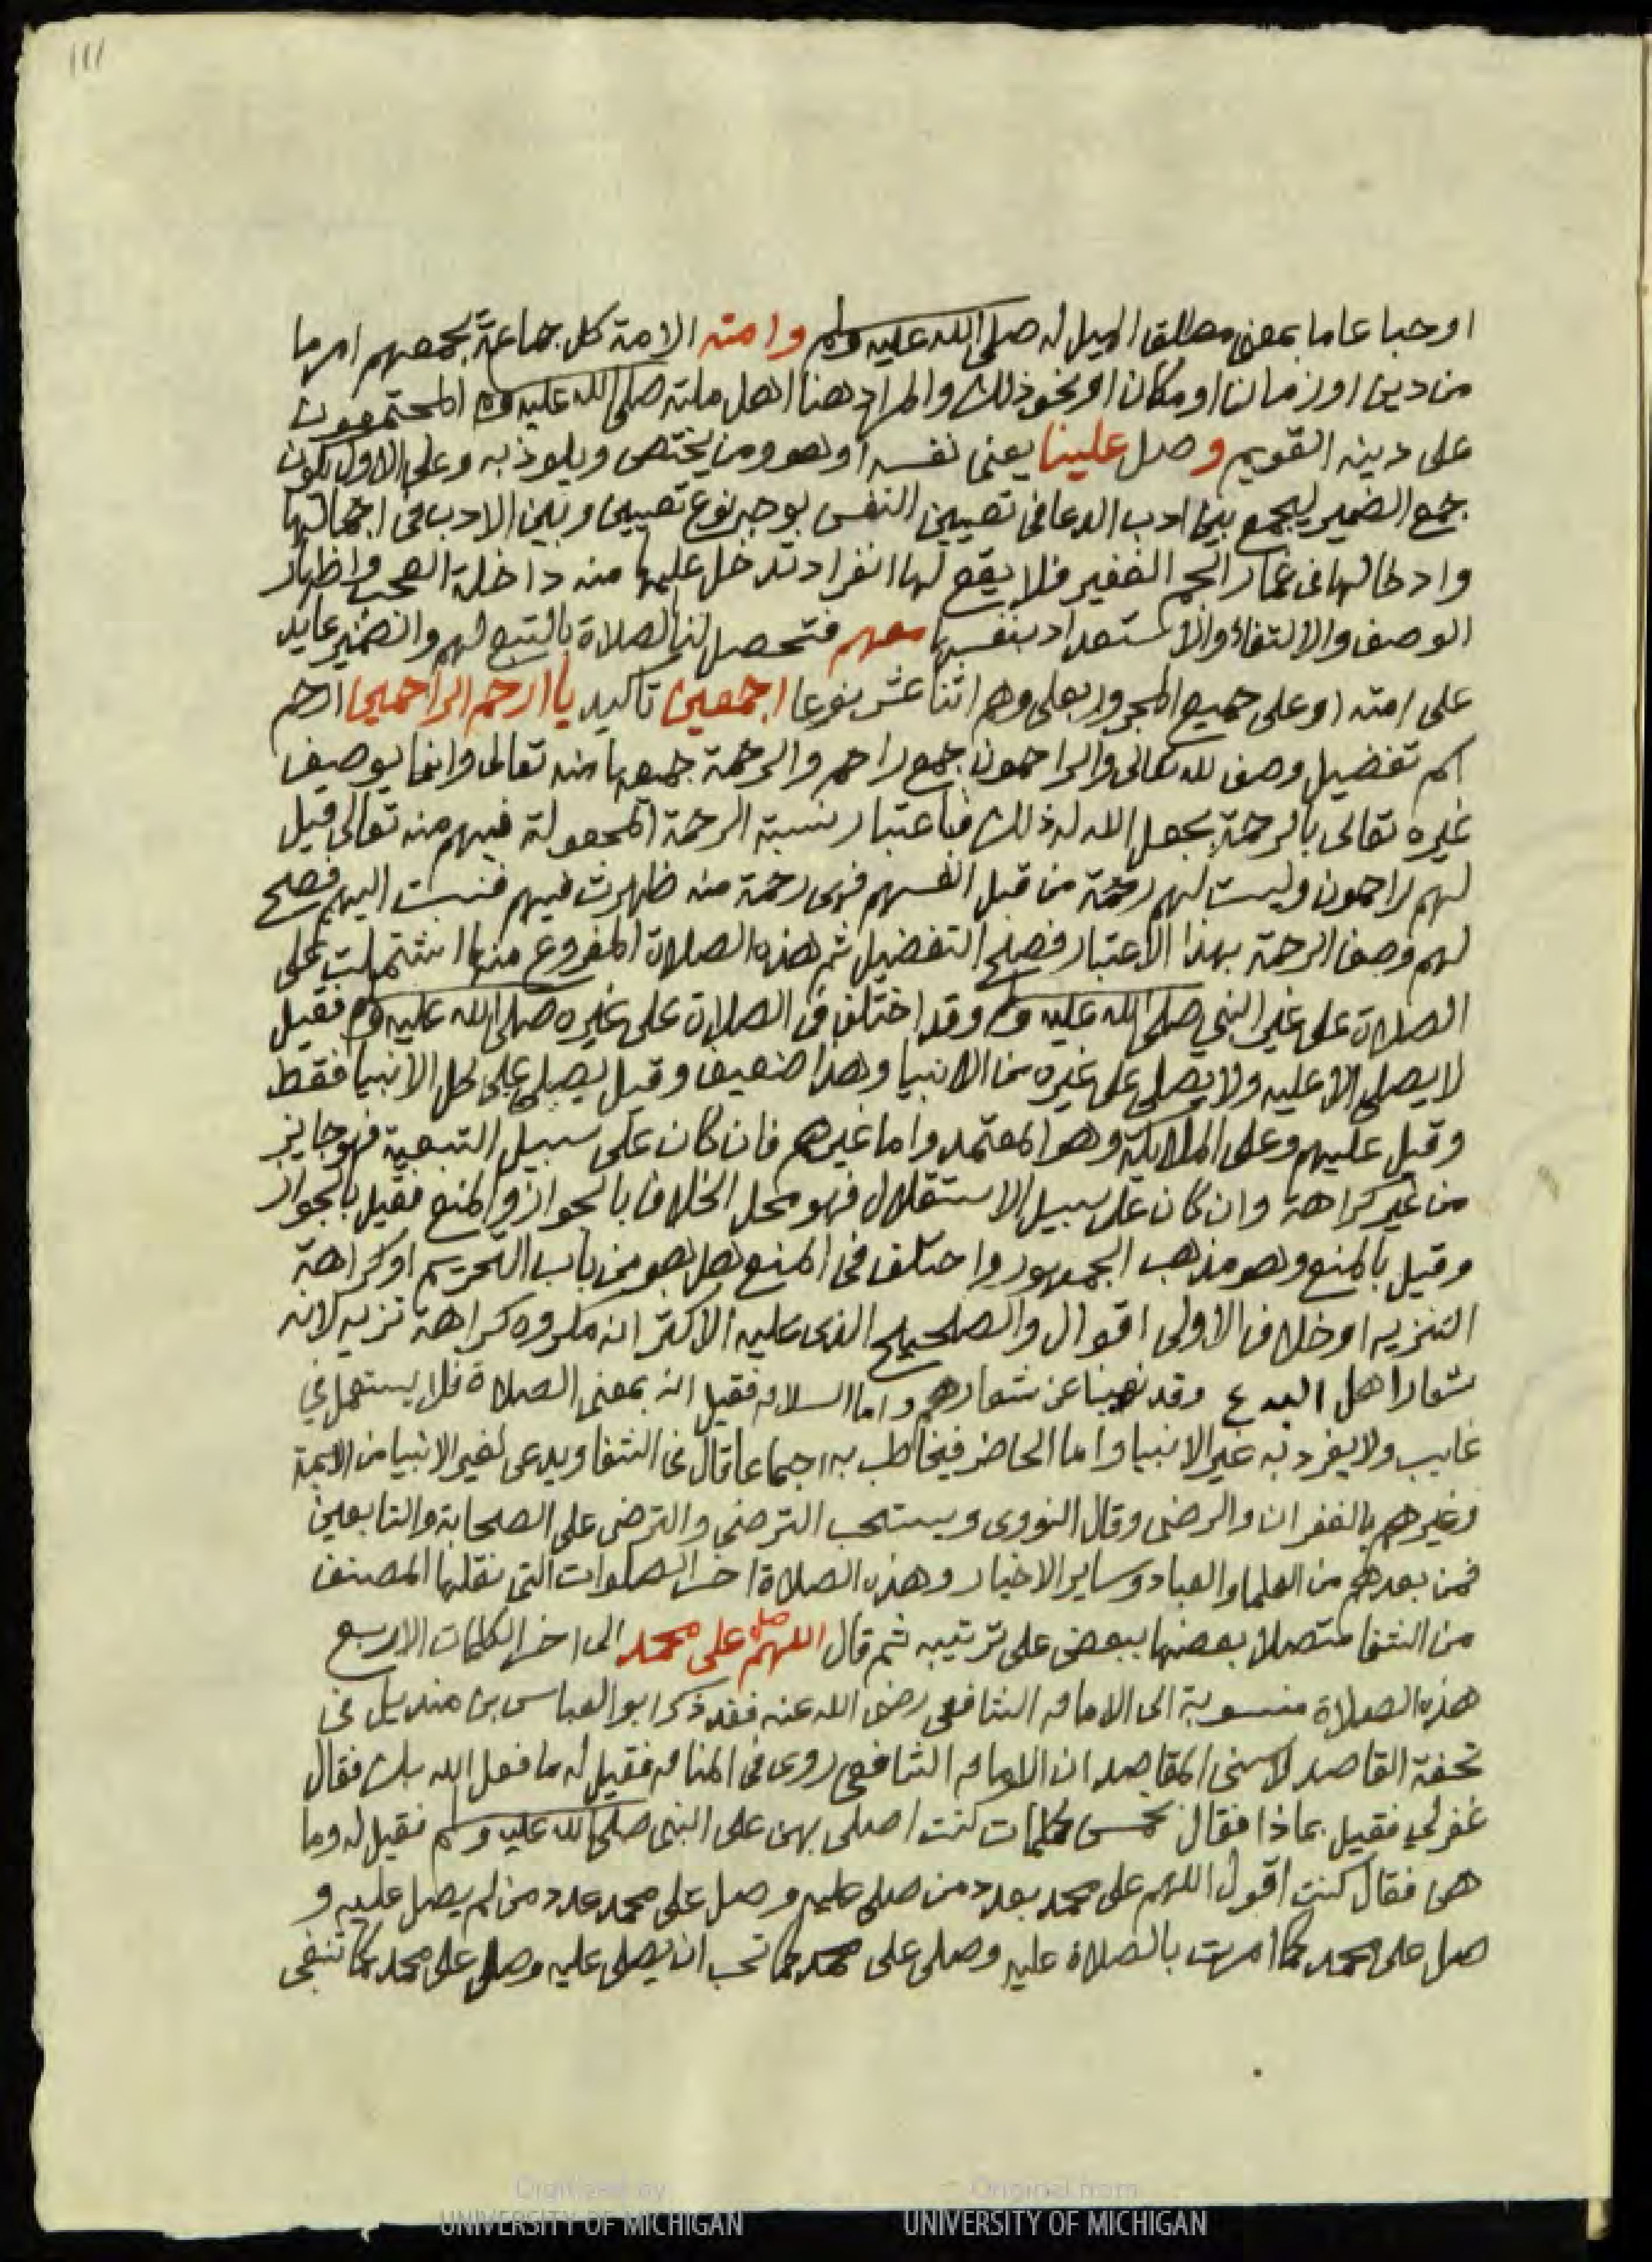 ١١١
او حبا عاما بمعنى مطلق الميل له صلى الله عليه وسلم وامته الامة كل جماعة يجمعهم امر ما
من دين او زمان او مكان او نحو ذلك والمراد هنا اهل ملته صلى الله عليه وسلم المجتمعون
على دينه القويم وصل علينا يعنى نفسه او هو ومن يختص ويلوذ به وعلى الاول يكون
جمع الضمير ليجمع بين ادب الدعا فى تعيين النفس بوجه نوع تعيين وبين الادب فى اجمالها
وادخالها فى غمار الجم الغفير فلا يقع لها انفراد تدخل عليها منه داخلة العجب واظهار
الوصف والالتفات والاستعداد بنفسها معهم فتحصل لنا الصلاة بالتبع لهم والضمير عايد
على امته او على جميع المجرور بعلى وهم اثنا عشر نوعا اجمعين تاكيد يا ارحم الراحمين ارحم
اسم تفضيل وصف لله تعالى والراحمون جمع راحم والرحمة جميعها منه تعالى وانما يوصف
غيره تعالى بالرحمة بجعل الله له ذلك فباعتبار نسبة الرحمة المجعولة فيهم منه تعالى قيل
لهم راحمون وليست لهم رحمة من قبل انفسهم فهى رحمة منه ظهرت فيهم فنسبت اليهم فصح
لهم وصف الرحمة بهذا الاعتبار فصلح التفضيل ثم هذه الصلاة المفروغ منها اشتملت على
الصلاة على غير النبي صلى الله عليه وسلم وقد اختلف فى الصلاة على غيره صلى الله عليه وسلم فقيل
لا يصلى الا عليه ولا يصلى على غيره من الانبيا وهذا ضعيف وقيل يصلى على كل الانبيا فقط
وقيل عليهم وعلى الملايكة وهو المعتمد واما غيرهم فان كان على سبيل التبعية فهو جايز
من غير كراهة وان كان على سبيل الاستقلال فهو محل الخلاف بالجواز والمنع فقيل بالجواز
وقيل بالمنع وهو مذهب الجمهور واختلف فى المنع هل هو من باب التحريم او كراهة
التنزيه او خلاف الاولى اقوال والصحيح الذى عليه الاكثر انه مكروه كراهة تنزيه لانه
شعار اهل البدع وقد نهينا عن شعارهم واما السلام فقيل انه بمعنى الصلاة فلا يستعمل في
غايب ولا يفرد به غير الانبيا واما الحاضر فيخاطب به اجماعا قال فى الشفا ويدعى لغير الانبيا من الايمة
وغيرهم بالغفران والرضى وقال النووى ويستحب الترضى والترضى على الصحابة والتابعين
فمن بعدهم من العلما والعباد وساير الاخيار وهذه الصلاة اخر الصلوات التى نقلها المصنف
من الشفا متصلا بعضها ببعض على ترتيبه ثم قال اللهم صل على محمد الى اخر الكلمات الاربع
هذه الصلاة منسوبة الى الامام الشافعى رضى الله عنه فقد ذكر ابو العباس بن منديل فى
تحفة القاصد لاسنى المقاصد ان الامام الشافعى روى فى المنام فقيل له ما فعل الله بك فقال
غفر لي فقيل بماذا فقال بخمس كلمات كنت اصلى بهن على النبى صلى الله عليه وسلم فقيل له وما
هى فقال كنت اقول اللهم على محمد بعدد من صلى عليه وصل على محمد عدد من لم يصل عليه و
صل على محمد كما امرت بالصلاة عليه وصلى على محمد كما تحب ان يصلى عليه وصل على محمد كما تنبغى